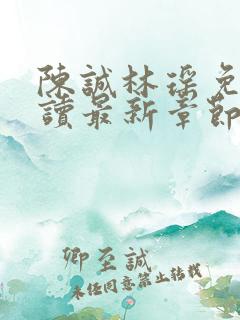 陳誠林瑤免
讀最新章節
卿至誠
未经同意禁止转载